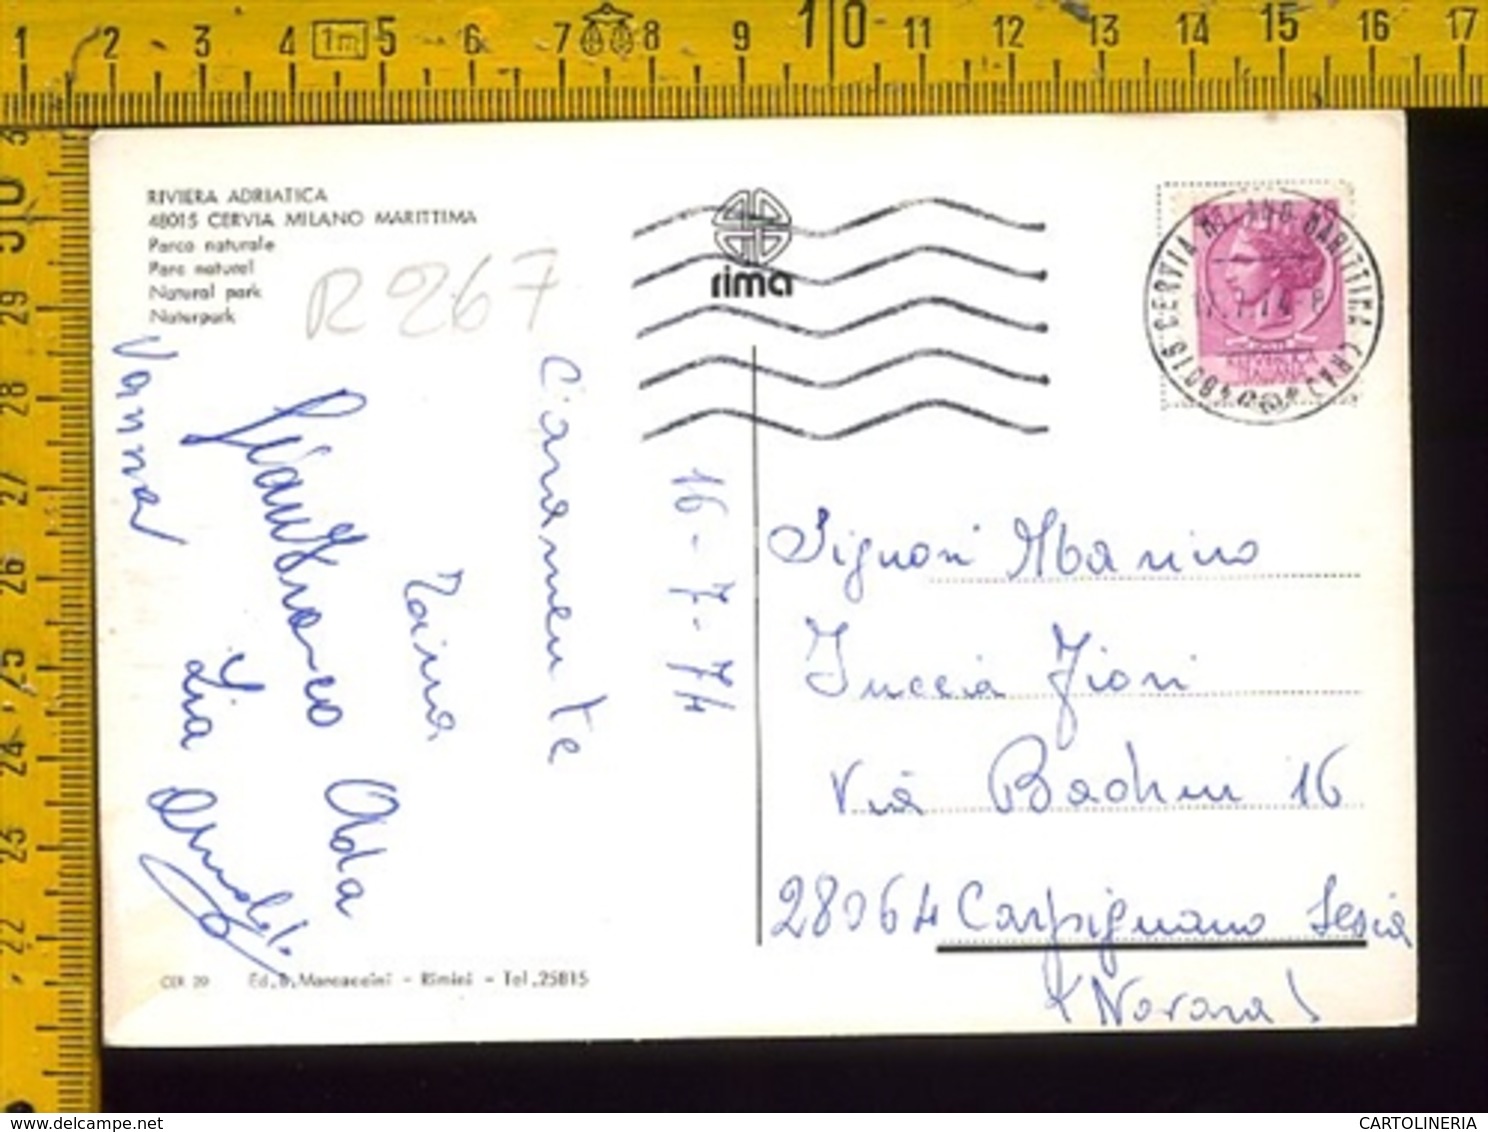 1 2 3 4 1m 5 6 7 8 9 10 11 12 13 14 15 16 17
RIVIERA ADRIATICA
48015 CERVIA MILANO MARITTIMA
Parco naturale
Parc naturel
Natural park
Naturpark
R 267
rima
48015 CERVIA MILANO MARITTIMA
REPUBBLICA
ITALIANA
16-7-74
Caramente
Gianfranco Ada
Lia
Vanna
Signori Marino
Via 16
28064 Carpignano Sesia
(Novara)
CER 29 Ed. B. Marcaccini - Rimini - Tel. 25815
30 29 28 27 26 25 24 23 22
Varie
CARTOLINERIA